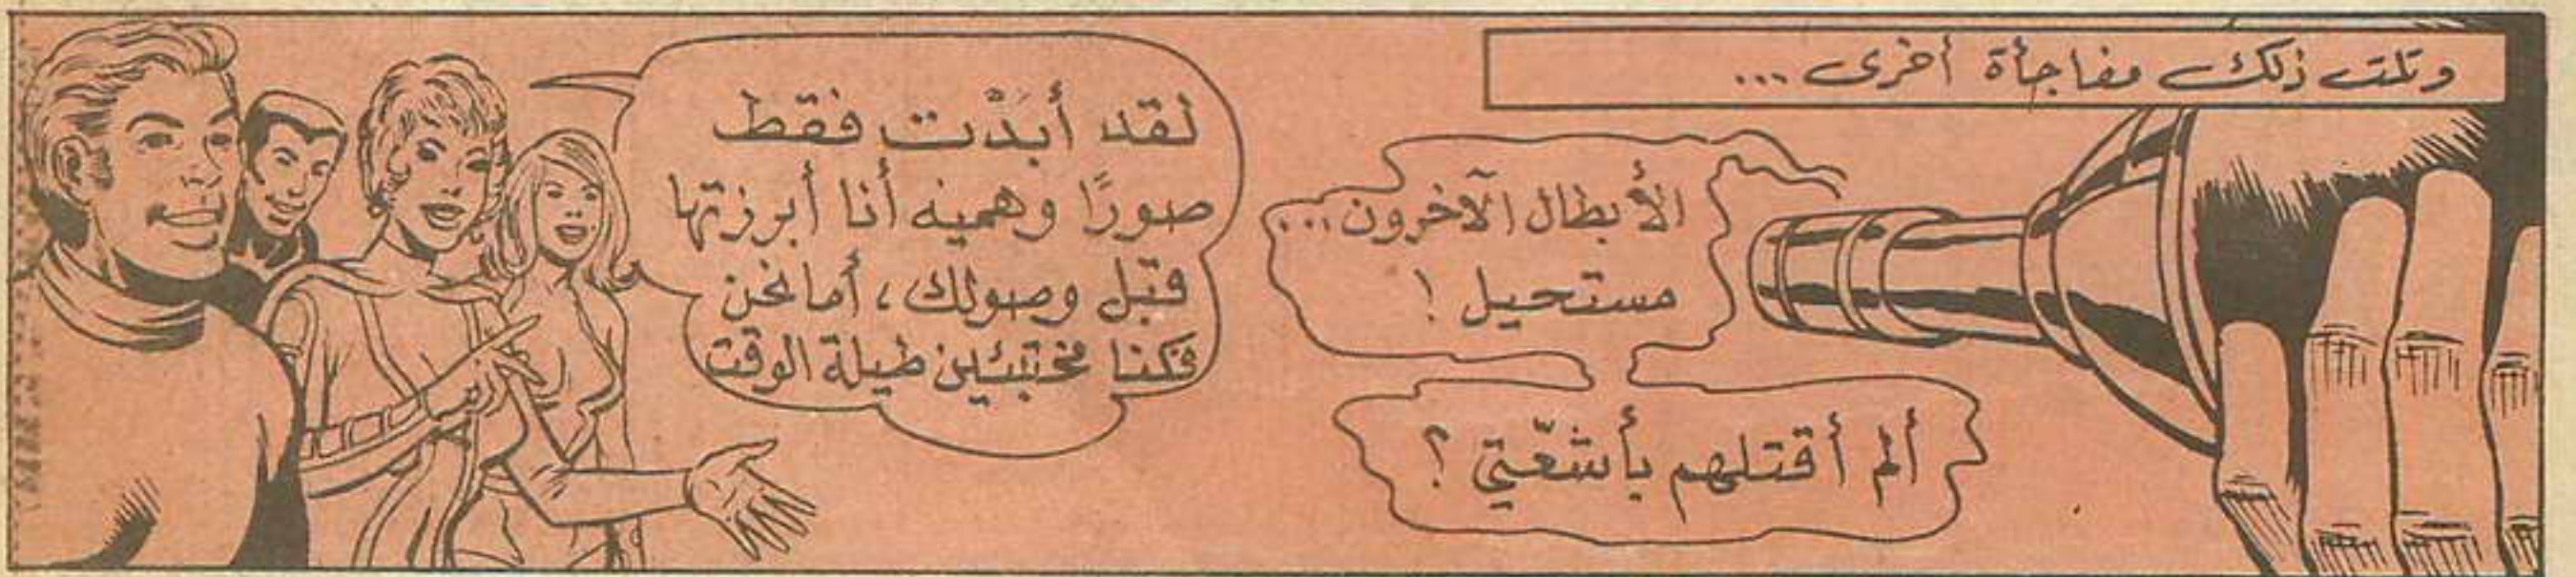 وتلت ذلك مفاجأة أخرى ...
الأبطال الآخرون ...
مستحيل !
ألم أقتلهم بأشعّتي ؟
لقد أَبَدْت فقط
صورًا وهميه أنا أبرزتها
قبل وصولك ، أما نحن
فكنا مختبئين طيلة الوقت